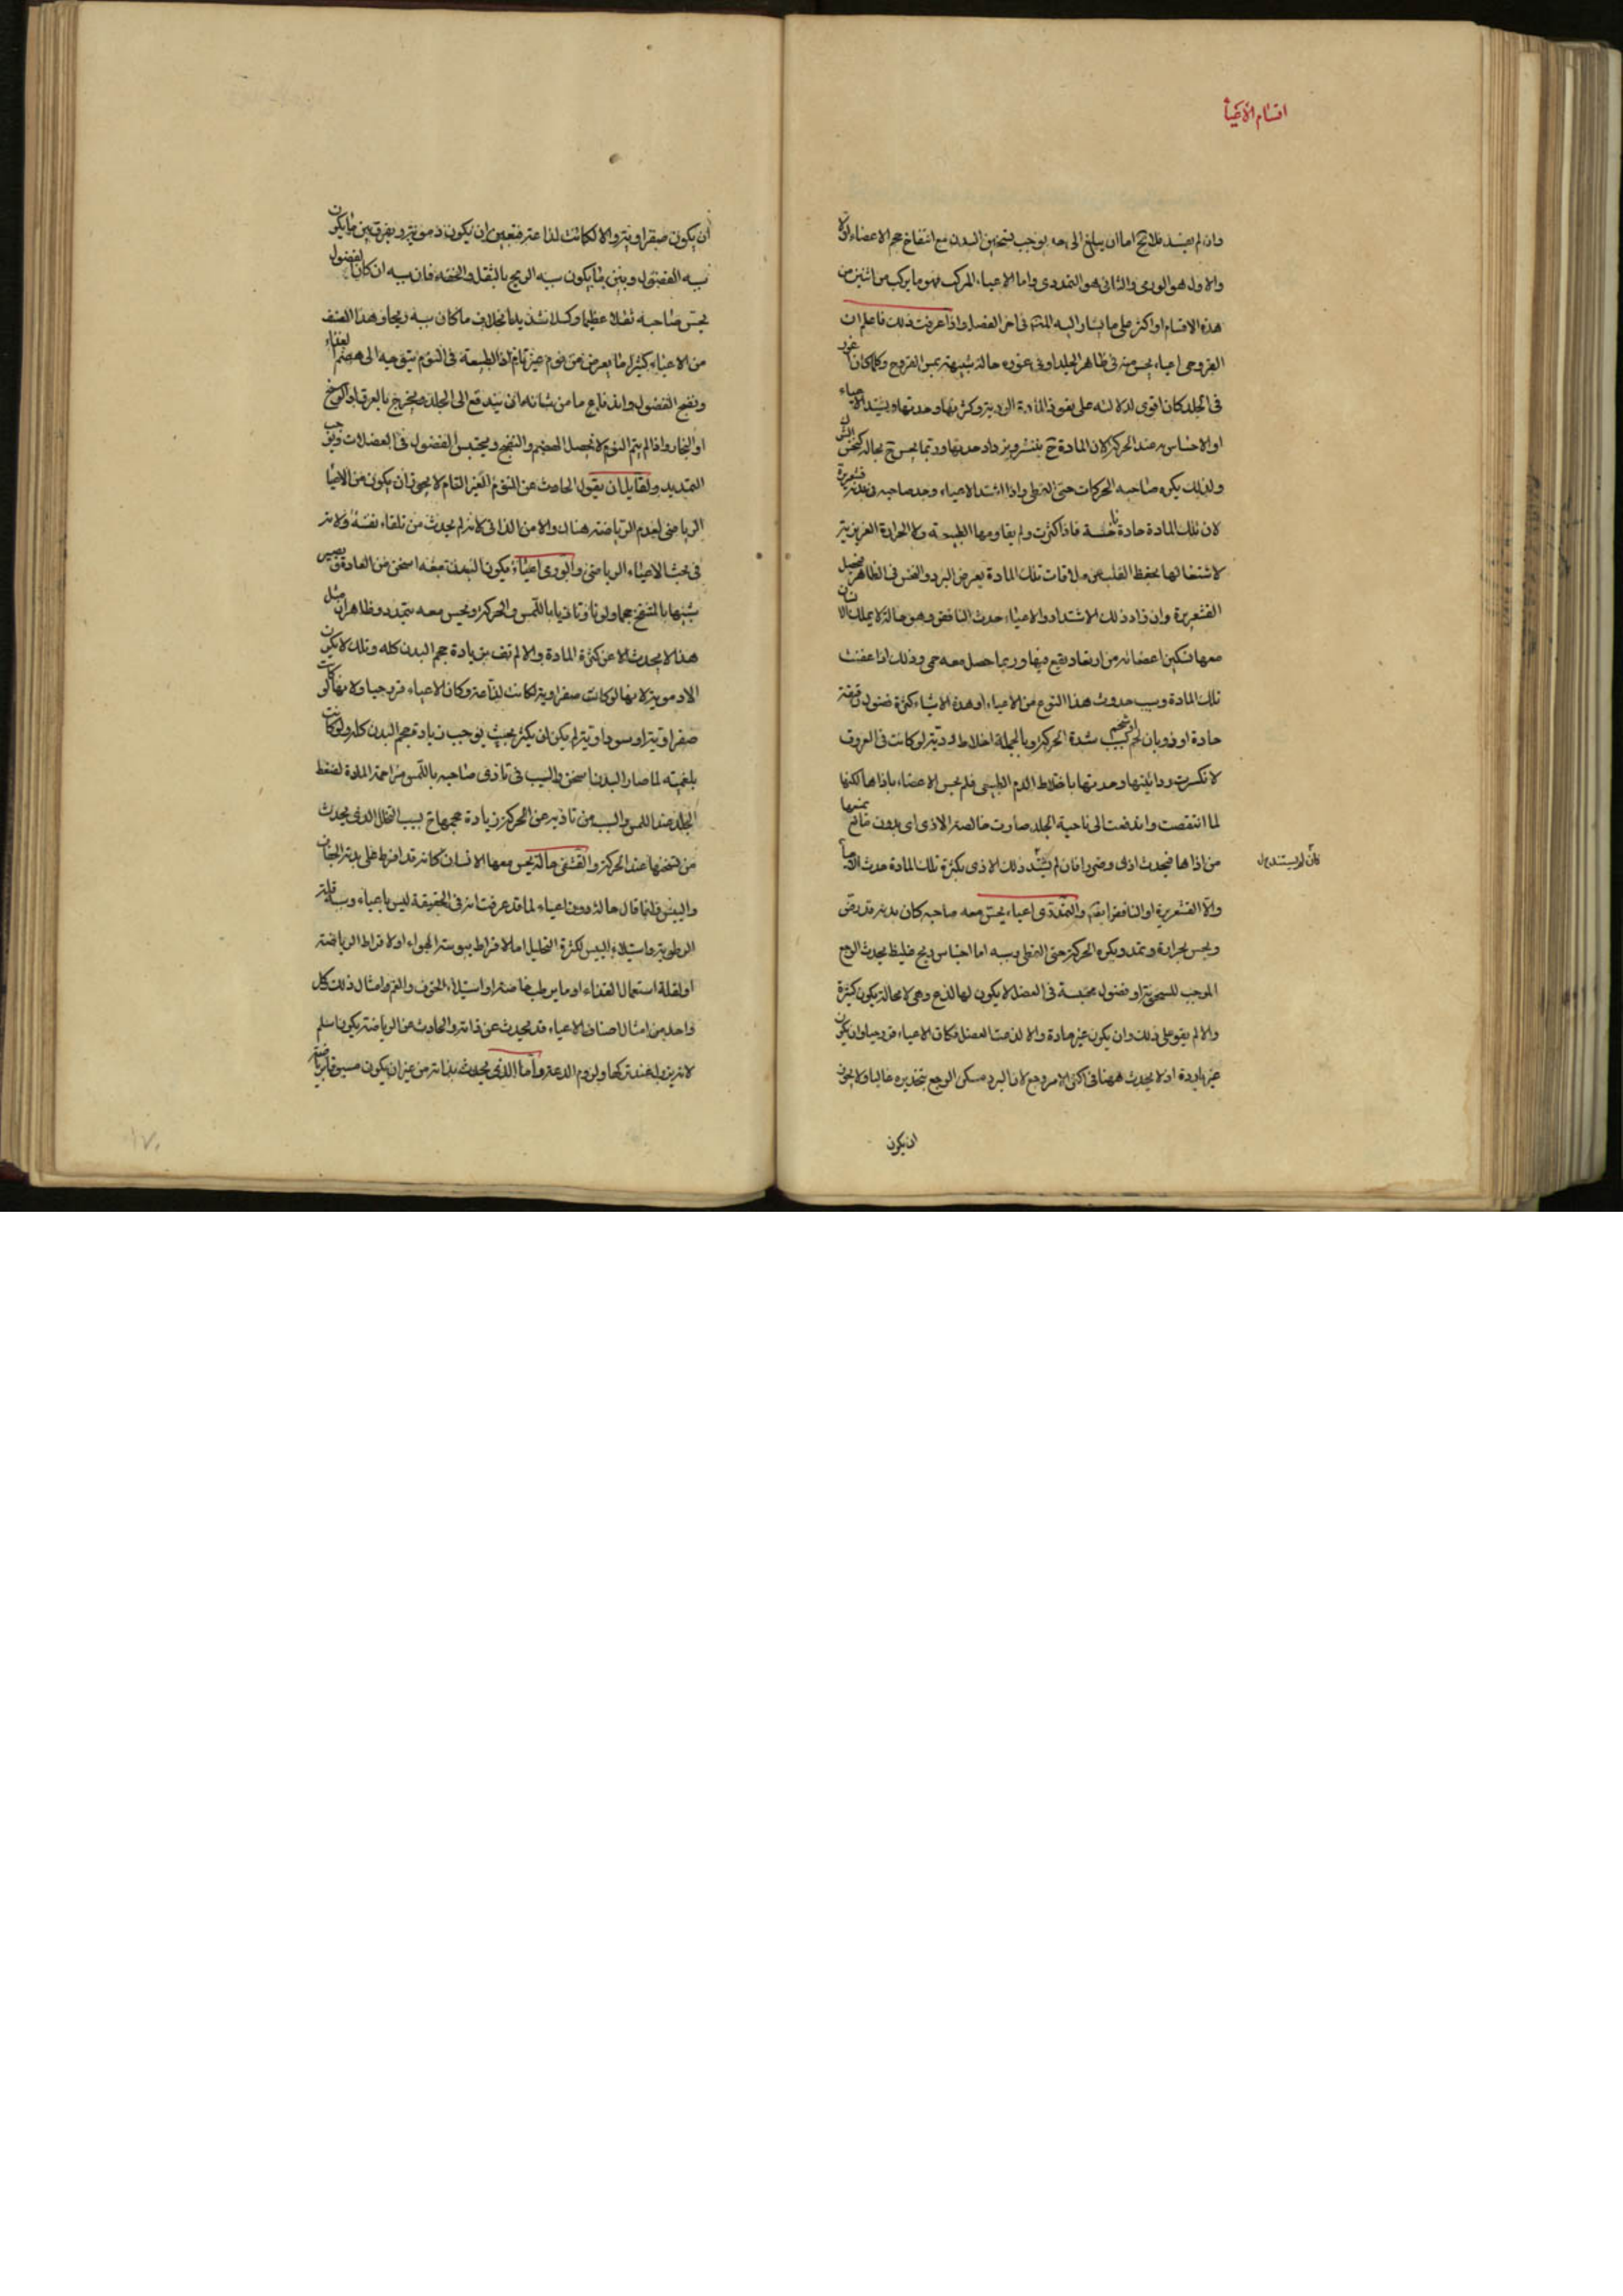 اقسام الاعياء
وان لم يفسد فلا يخ اما ان يبلغ الى حد يوجب تسخين البدن مع انتفاخ حجم الاعضاء اولا
والاول هو الورمى والثانى هو التمددى واما الاعياء المركب فهو ما يركب من اثنين من
هذه الاقسام او اكثر على ما اشار اليه المص فى اخر الفصل واذا عرفت ذلك فاعلم ان
القروحى اعياء يحس منه فى ظاهر الجلد او فى غوره حالة شبيهة بمس القروح وكلما كان اغور
فى الجلد كان اقوى لدلالته على نفوذ المادة الردية وكثرتها وحدتها ويشتد الاعياء
او الاحساس به عند الحركة لان المادة ح ينتشر ويزداد حدتها وربما يحس ح بحالة كنخس الشوك
ولذلك يكره صاحبه الحركات حتى التمطى واذا اشتد الاعياء وجد صاحبه فى بدنه قشعريرة
لان تلك المادة حادة فاذا كثرت ولم يقاومها الطبيعة ولا الحرارة الغريزية
لاشتغالها بحفظ القلب عن ملاقات تلك المادة يعرض البرد والنخس فى الظاهر فيحصل
القشعريرة وان زاد ذلك الاشتداد والاعياء حدث النافض وهو حالة لا يملك الانسان
معها تسكين اعضائه من ارتعاد يقع فيها وربما حصل معه حمى وذلك اذا عفنت
تلك المادة وسبب حدوث هذا النوع من الاعياء او هذه الاشياء كثرة فضول رقيقة
حادة او ذوبان لحم او شحم بسبب شدة الحركة وبالجملة اخلاط ردية لو كانت فى العروق
لانكسرت رداءتها وحدتها باختلاط الدم الطبيعى فلم يحس الاعضاء باذاها لكنها
لما انتقصت واندفعت الى ناحية الجلد صارت خالصة الاذى اى بدون مانع يمنعها
من اذاها فيحدث اذى وضررا فان لم يشتد ذلك الاذى بكثرة تلك المادة حدث الاعياء
والا القشعريرة او النافض ايضا والتمددى اعياء يحس معه صاحبه كان بدنه قد رض
ويحس بحرارة وتمدد ويكره الحركة حتى التمطى وسببه اما احتباس ريح غليظ يحدث الوجع
الموجب للسيحوية او فضول محتبسة فى العضل لا يكون لها لذع وهى لا محالة يكون كثيرة
والا لم يقو على ذلك وان يكون غير حادة والا لذعت العضل فكان الاعياء قروحيا وان يكون
غير باردة اذ لا يحدث ههنا فى اكثر الامر وجع لان البرد مسكن الوجع بتخديره غالبا ولا يجوز
ان يكون
ان يكون صفراوية والا لكانت لذاعة فتعين ان يكون دموية ويفرق بين ما يكون
سببه الفضول وبين ما يكون سببه الريح بالثقل والخفة فان سببه ان كان الفضول
يحس صاحبه ثقلا عظيما وكسلا شديدا بخلاف ما كان سببه ريحا وهذا الصنف
من الاعياء كثيرا ما يعرض من نوم غير تام اذ الطبيعة فى النوم يتوجه الى هضم الغذاء
ونضج الفضول واندفاع ما من شانه ان يندفع الى الجلد فيخرج بالعرق او الوسخ
او البخار واذا لم يتم النوم لا يحصل الهضم والنضج ويحتبس الفضول فى العضلات ويوجب
التمديد ولقايل ان يقول الحادث عن النوم الغير التام لا يجوز ان يكون من الاعياء
الرياضى لعدم الرياضة هنالك ولا من الذاتى لانه لم يحدث من تلقاء نفسه ولانه
فى بحث الاعياء الرياضى والورمى اعياء يكون البدن معه اسخن من العادة ويصير
شبيها بالمنتفخ حجما ولونا وتاذيا باللمس والحركة ويحس معه بتمدد وظاهر ان مثل
هذا لا يحدث الا عن كثرة المادة والا لم تف بزيادة حجم البدن كله وتلك لا يكون
الا دموية لانها لو كانت صفراوية لكانت لذاعة وكان الاعياء قروحيا ولانها لو كانت
صفراوية او سوداوية لم يكن ان يكثر بحيث يوجب زيادة حجم البدن كله ولو كانت
بلغمية لما صار البدن اسخن والسبب فى تاذى صاحبه باللمس مزاحمة المادة لضغط
الجلد عند اللمس والسبب من تاذيه عن الحركة زيادة حجمها ح بسبب التخلل الذى يحدث
من تسخنها عند الحركة والقشفى حالة يحس معها الانسان كانه قد افرط على بدنه الجفاف
واليبس وانما قال حالة دون اعياء لما قد عرفت انه فى الحقيقة ليس باعياء وسببه قلة
الرطوبة واستيلاء اليبس لكثرة التحليل اما لافراط يبوسة الهواء او لافراط الرياضة
او لقلة استعمال الغذاء او ما يرطب خاصة او استيلاء الخوف والغم وامثال ذلك كل
واحد من امثال اصناف الاعياء قد يحدث عن ذاته والحادث عن الرياضة يكون اسلم
لانه يزول عند تركها ولزوم الدعة واما الذى يحدث بذاته من غير ان يكون مسبوقا برياضة